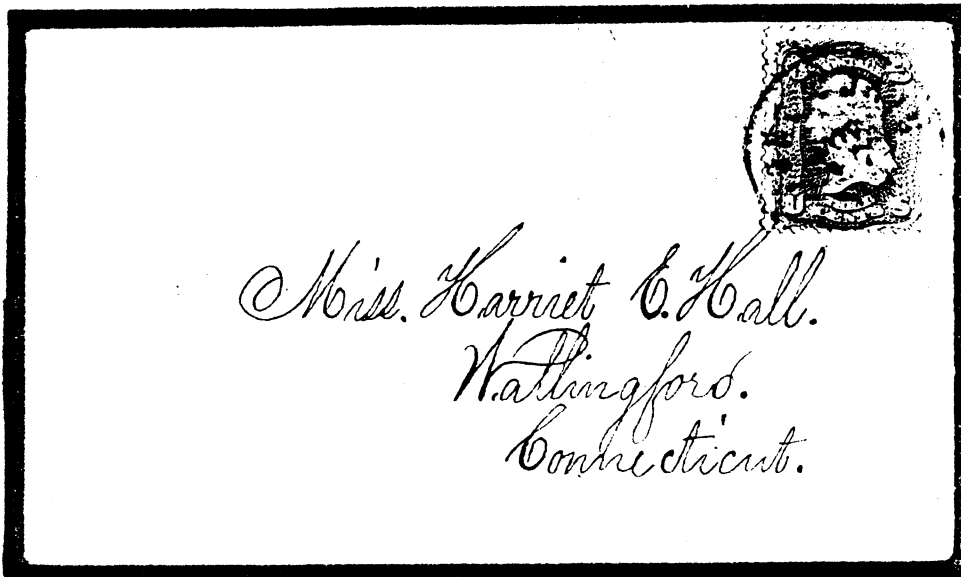 Miss. Harriet E. Hall.
Wallingford.
Connecticut.